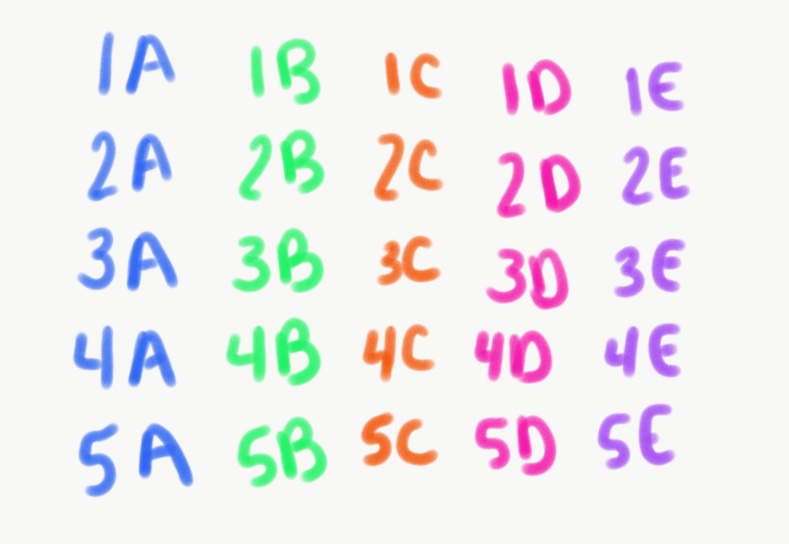 1A 1B 1C 1D 1E
2A 2B 2C 2D 2E
3A 3B 3C 3D 3E
4A 4B 4C 4D 4E
5A 5B 5C 5D 5E